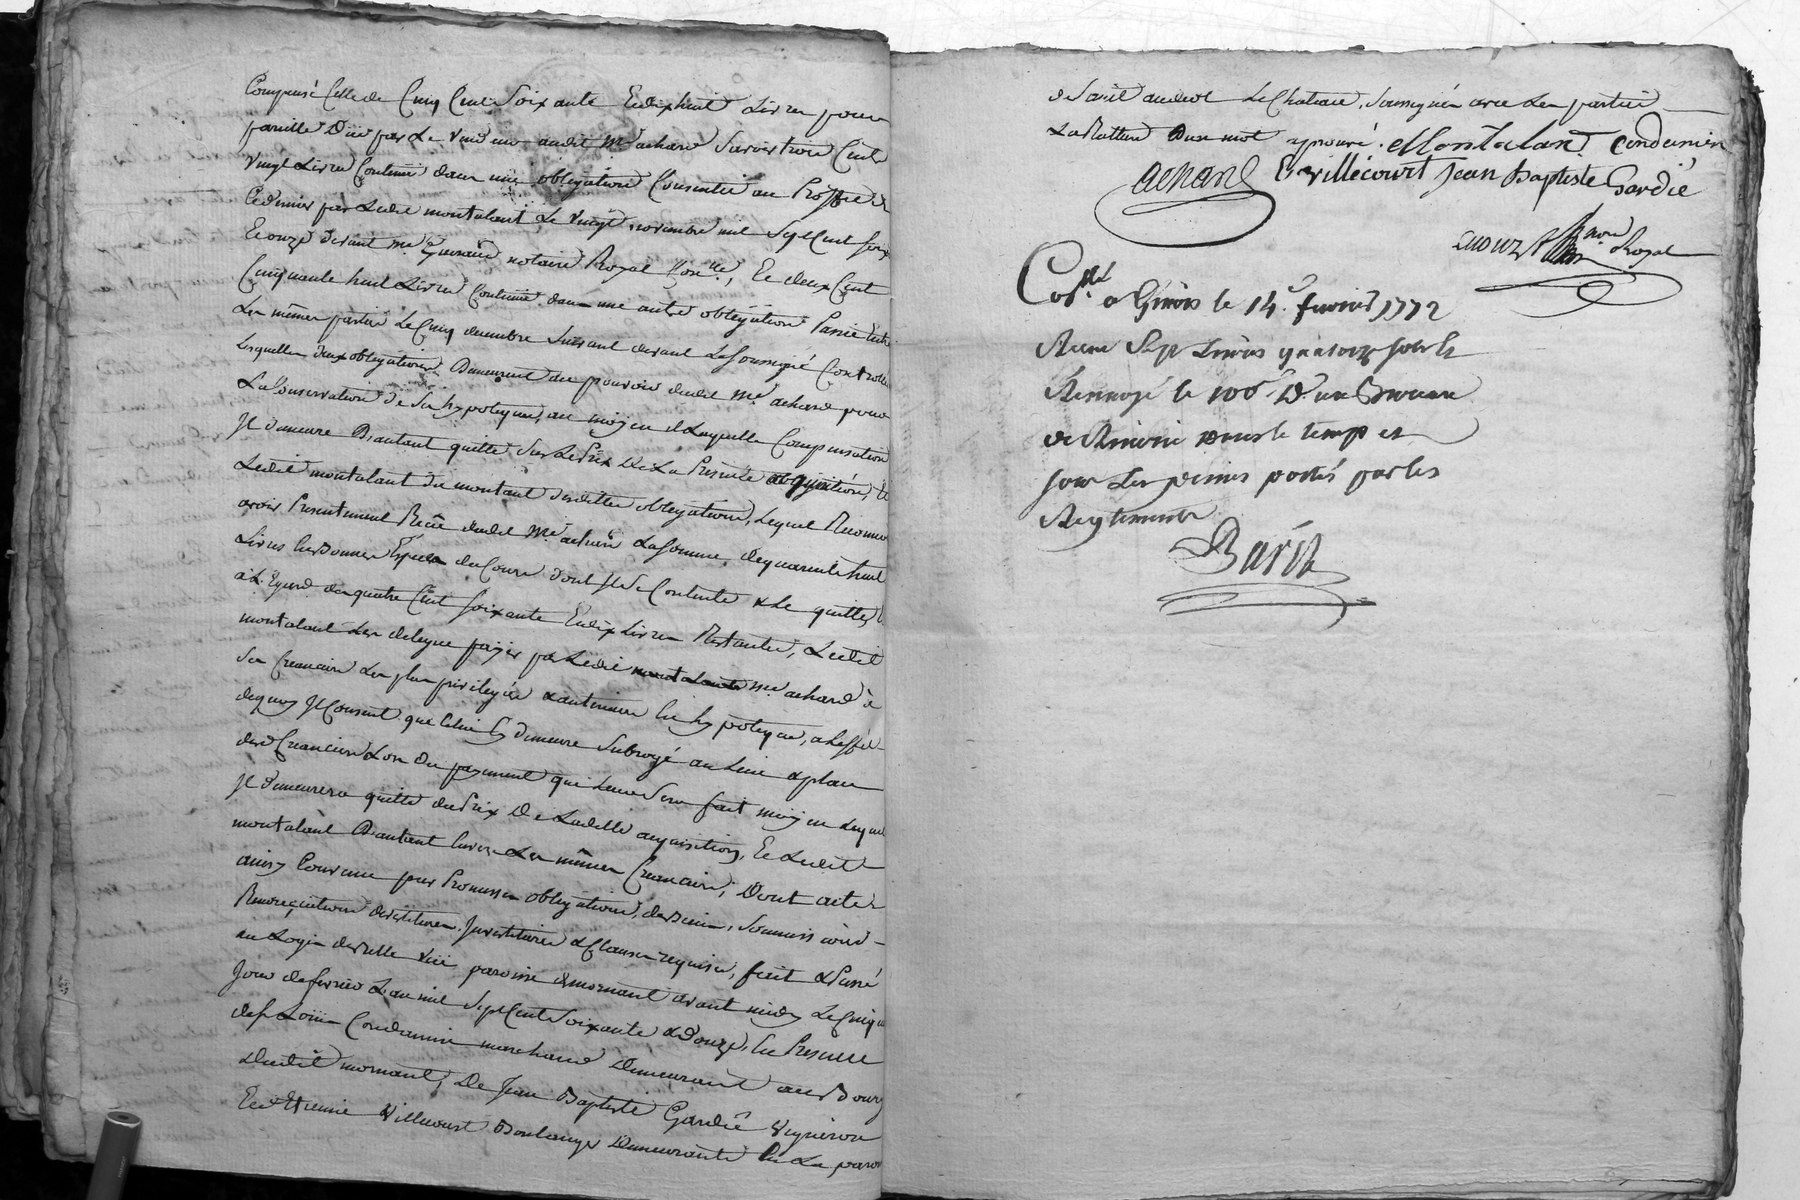 Compensé Celle de Cinq Cent Soixante Et dix huit Livres pour
pareille Düe par Le Vendeur audit Me achard Savoir trois Cent
vingt Livres Contenüe dans une obligation Consentie au Proffit de
Ce dernier par Ledit montalant Le vingt novembre mil Sept Cent Soix
Et onze devant Me notaire Royal Et deux Cent
Cinquante huit Livres Contenüe dans une autre obligation Passée Entre
Les mêmes parties Le Cinq decembre Suivant devant Le Soussigné Controllé
Lesquelles deux obligations Demeurent au pouvoir dudit Me achard pour
La Conservation de Ses hypoteques, au moyen de Laquelle Compensation
Il demeure D'autant quitte Sur Le Prix De La Presente acquisition, Et
Ledit montalant du montant desdittes obligations, Lequel Reconnoit
avoir Presentement Recu dudit Me achard La Somme de quarante huit
Livres En Bonnes Especes du Cours dont Il Se Contente & Le quitte,
a L'Egard des quatre Cent Soixante Et dix Livres Restantes, Ledit
montalant Les delegue payer par Ledit Me achard à
Ses Creanciers Les plus privilegiés & anterieurs En hypoteque, a L'effet
de quoy Il Consent que Celui Cy demeure Subrogé au Lieu & place
desd. Creanciers Lors du payement qui Leur Sera fait moyen Lequel
Il demeurera quitte du Prix De Laditte acquisition, Et Ledit
montalant D'autant Envers Les mêmes Creanciers, Dont acte
ainsy Convenu par Promesses obligations, de Biens, Soumissions
Renonciations & Clauses requises, fait & Passé
au Logis de Belle Vüe paroisse de mornant avant midy Le Cinq
Jour de fevrier L'an mil Sept Cent Soixante & Douze, En Presence
de Sr Loüis Condamin marchand Demeurant au Bourg
dudit mornant, De Jean Baptiste Gardié Vigneron
Et d'Etienne Villecourt Boulanger Demeurants En La paroisse
de Saint andeol Le Chateau, Soussignés avec Les parties
La Rature d'un mot aprouvé. Montalan Condamin
achard E villecourt Jean Baptiste Gardié
nore Royal
Collé a Givors le 14e. fevrier 1772
Recu Sept Livres quatorze sols
Renvoyé le 100e. D. au Bureau
dans le temp et
sous Les peines portés par les
Reglements